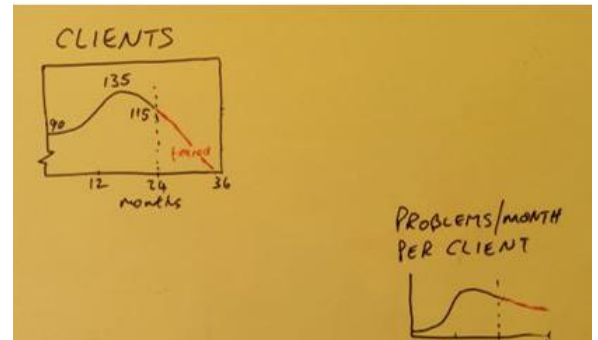 CLIENTS
135
90
115
feared
12 24 36
months
PROBLEMS/MONTH
PER CLIENT